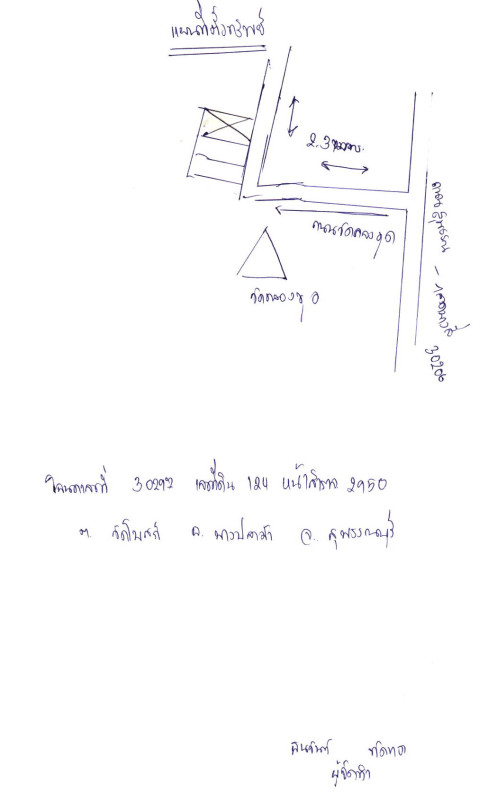 แผนที่ตั้งทรัพย์
2.3
ถนนวัดคลองขุด
วัดคลองขุด
ถนนสุพรรณ -
โฉนดเลขที่ 30292 เลขที่ดิน 124 หน้าสำรวจ 2950
ต. วัดโบสถ์ อ. บางปลาม้า จ. สุพรรณบุรี
ผู้จัดทำ